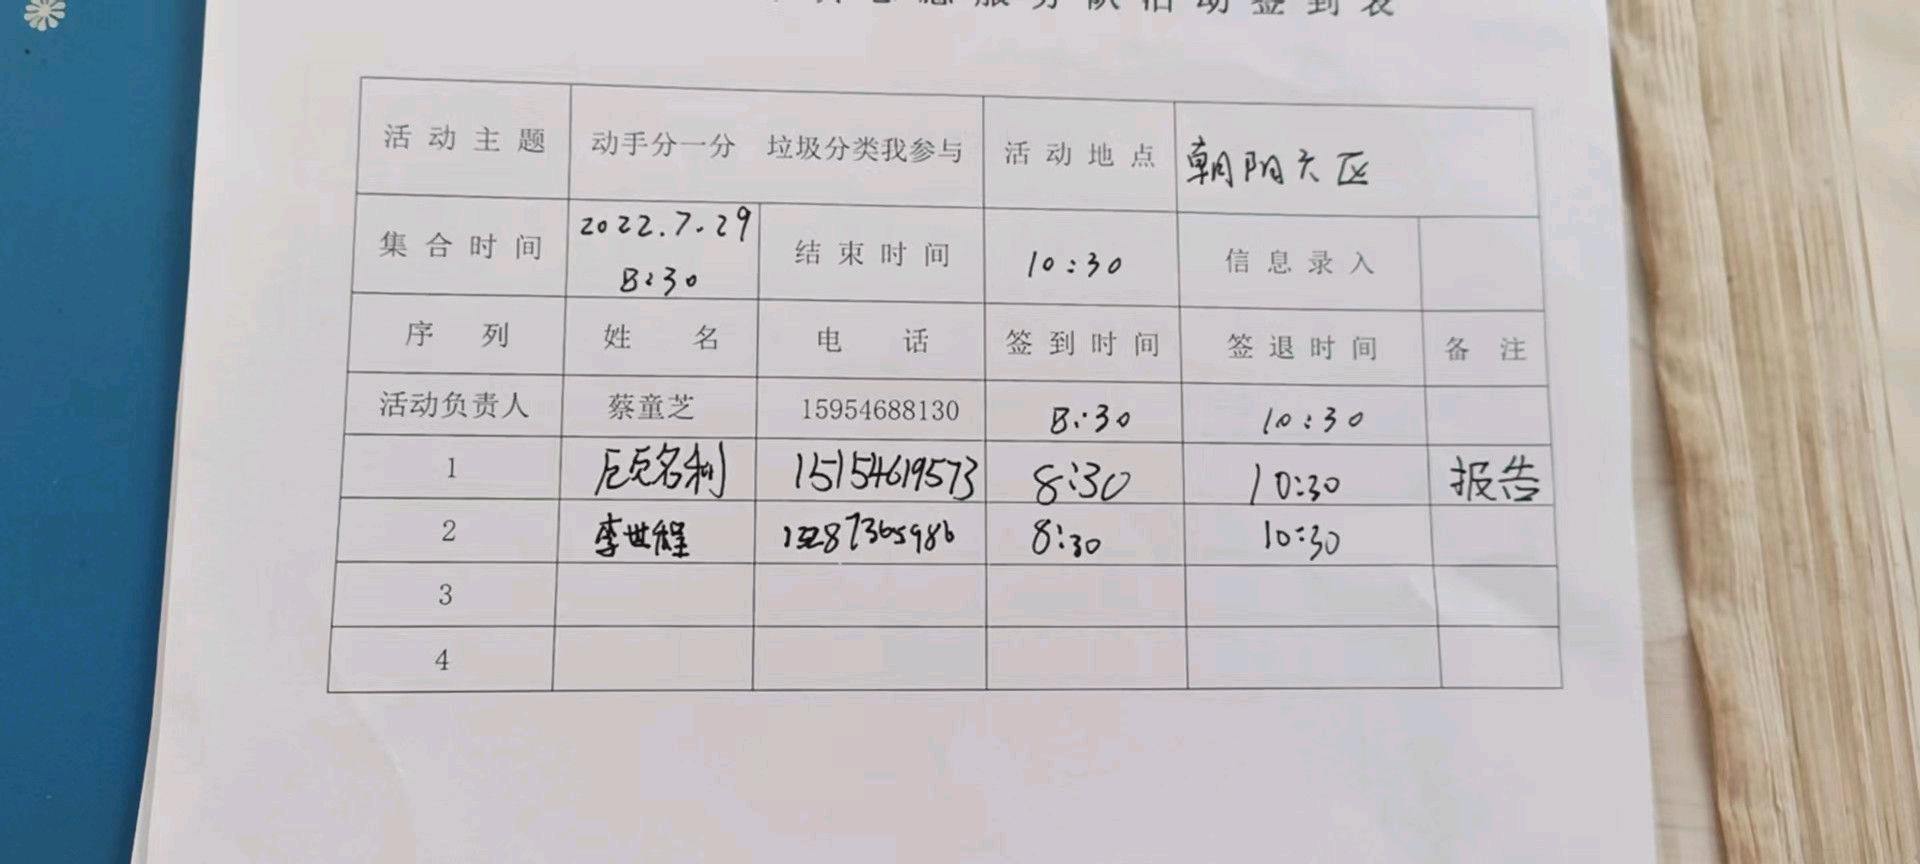 志愿服务队活动签到表
活动主题 动手分一分 垃圾分类我参与 活动地点 朝阳六区
集合时间 2022.7.29 8:30 结束时间 10:30 信息录入
序列 姓名 电话 签到时间 签退时间 备注
活动负责人 蔡童芝 15954688130 8:30 10:30
1 15154619573 8:30 10:30 报告
2 李世程 8:30 10:30
3
4